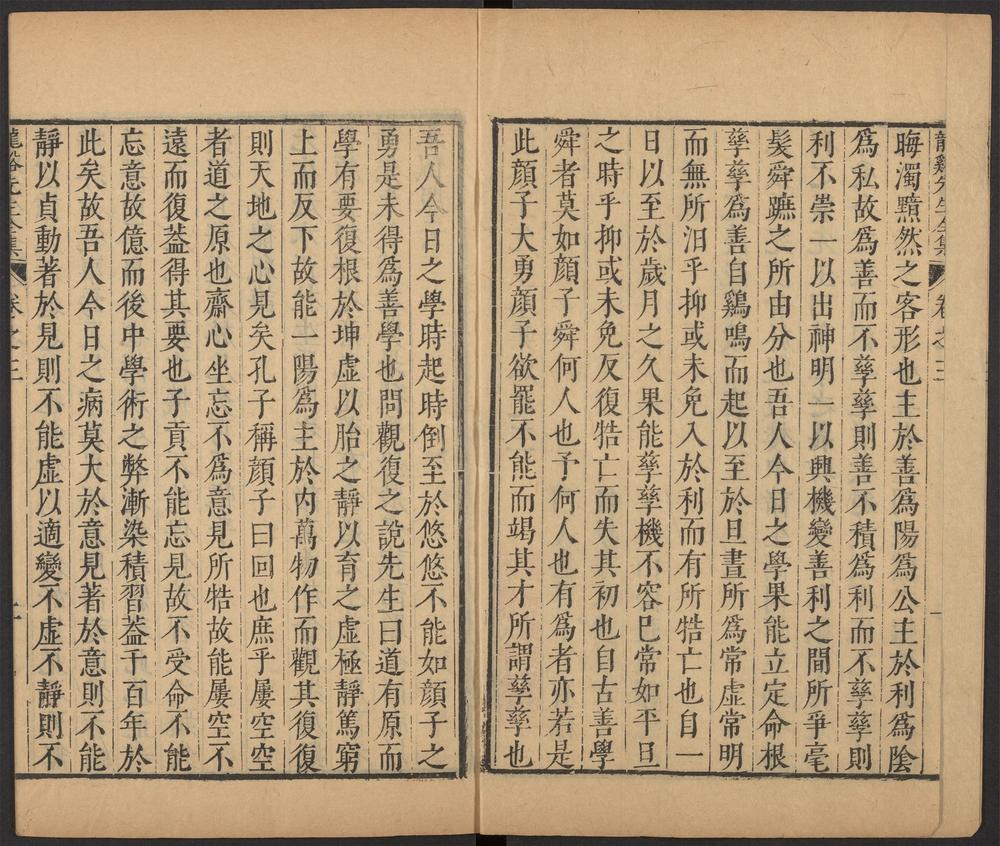 龍谿先生全集 卷之三
晦濁黯然之客形也主於善爲陽爲公主於利爲陰
爲私故爲善而不孳孳則善不積爲利而不孳孳則
利不崇一以出神明一以興機變善利之間所爭毫
髮舜蹠之所由分也吾人今日之學果能立定命根
孳孳爲善自鷄鳴而起以至於旦晝所爲常虛常明
而無所汩乎抑或未免入於利而有所牿亡也自一
日以至於歲月之久果能孳孳機不容已常如平旦
之時乎抑或未免反復牿亡而失其初也自古善學
舜者莫如顏子舜何人也予何人也有爲者亦若是
此顏子大勇顏子欲罷不能而竭其才所謂孳孳也
吾人今日之學時起時倒至於悠悠不能如顏子之
勇是未得爲善學也問觀復之說先生曰道有原而
學有要復根於坤虛以胎之靜以育之虛極靜篤窮
上而反下故能一陽爲主於內萬物作而觀其復復
則天地之心見矣孔子稱顏子曰回也庶乎屢空空
者道之原也齋心坐忘不爲意見所牿故能屢空不
遠而復葢得其要也子貢不能忘見故不受命不能
忘意故億而後中學術之弊漸染積習葢千百年於
此矣故吾人今日之病莫大於意見著於意則不能
靜以貞動著於見則不能虛以適變不虛不靜則不
龍谿先生全集 卷之三